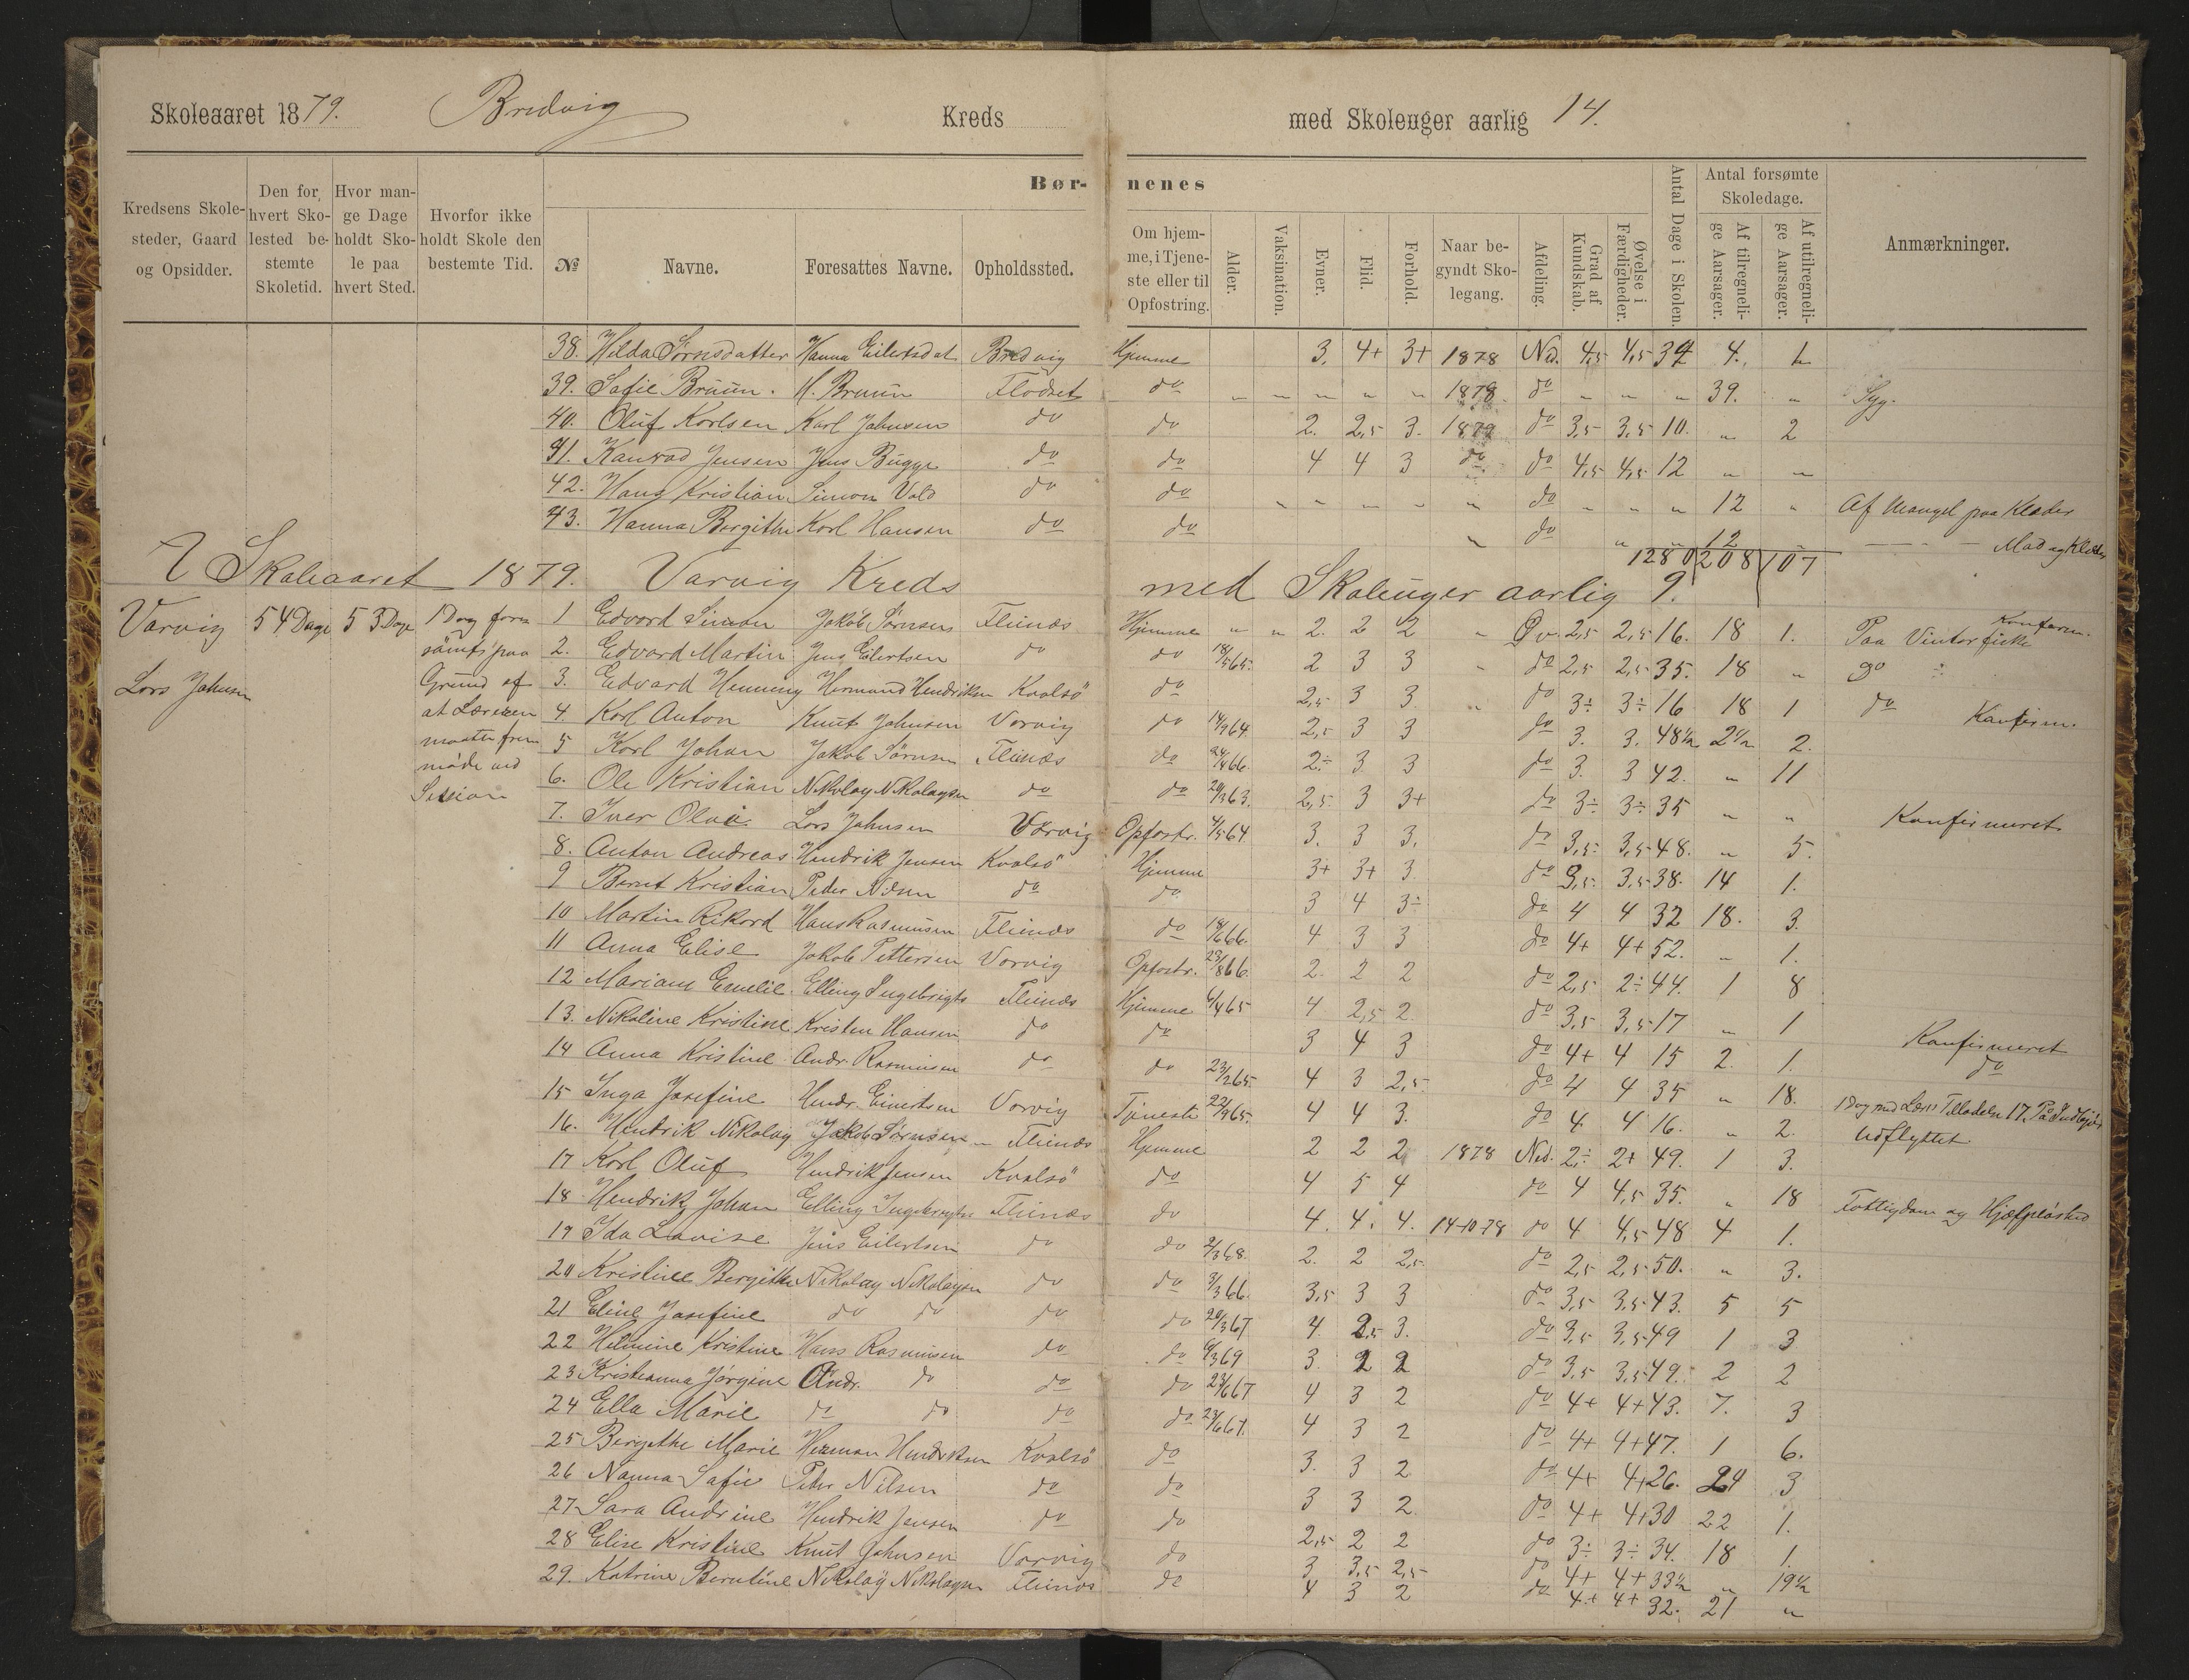 Skoleaaret 1879. Bredvig Kreds med Skoleuger aarlig 14.
Kredsens Skolesteder, Gaard og Opsidder.
Den for hvert Skolested bestemte Skoletid.
Hvor mange Dage holdt Skole paa hvert Sted.
Hvorfor ikke holdt Skole den bestemte Tid.
Børnenes
№
Navne.
Foresattes Navne.
Opholdssted.
Om hjemme, i Tjeneste eller til Opfostring.
Alder.
Vaksination.
Evner.
Flid.
Forhold.
Naar begyndt Skolegang.
Afdeling.
Grad af Kundskab.
Øvelse i Færdigheder.
Antal Dage i Skolen.
Antal forsømte Skoledage.
Af tilregnelige Aarsager.
Af utilregnelige Aarsager.
Anmærkninger.
38. Hilda Sørnsdatter Hanna Eilertsdat Bredvig Hjemme 3. 4+ 3+ 1878 Ned. 4,5 4,5 34 4. 1
39. Sofie Bruun. H. Bruun Flodset do " " " " " 1878 do " " " 39. " Syg.
40. Oluf Karlsen Karl Johnsen do do 2. 2,5 3. 1879 do 3,5 3,5 10. " 2
41. Kanrad Jensen Jens Bugge do do 4 4 3 do do 4,5 4,5 12 " "
42. Hans Kristian Simon Vold do do " " " " " do " " " 12 " Af Mangel paa Klæder
43. Hanna Bergithe Karl Hansen do do " do " " 12 " Mad og Klæder
1280 208 107
I Skoleaaret 1879. Varvig Kreds med Skoleuger aarlig 9.
Varvig 54 Dage 53 Dage
1 Dag forsømt paa Grund af at Læreren maatte fremmøde ved Session
Lars Johnsen
1 Edvard Simon Jakob Sørnsen Flinæs Hjemme " " 2. 2 2 " Øv. 2,5 2,5 16. 18 1. Paa Vinterfiske Konferm.
2. Edvard Martin Jens Eilertsen do do 18/5 65. 2 3 3 " do 2,5 2,5 35. 18 " do
3. Edvard Henning Hermand Hendriksen Kvalsö do 2,5 3 3 " do 3÷ 3÷ 16 18 1 do Konferm.
4. Karl Anton Knut Johnsen Varvig do 14/9 64 2,5 3 3 do 3. 3. 48½ 2½ 2.
5 Karl Johan Jakob Sørnsen Flinæs do 24/4 66. 2÷ 3 3 do 3. 3 42. " 11
6. Ole Kristian Nikolay Nikolaysen do do 20/3 63. 2,5 3 3+ do 3÷ 3÷ 35 " " Konfirmeret
7. Iver Olai Lars Johnsen Varvig Opfostr. 4/5 64 3. 3 3. do 3,5 3,5 48. " 5.
8. Anton Andreas Hendrik Jensen Kvalsö Hjemme 3+ 3+ 3. do 3,5 3,5 38. 14 1.
9 Bernt Kristian Peder Nilsen do do 3 4 3÷ do 4 4 32 18. 3.
10 Martin Rikard Hans Rasmusen Flinæs do 18/6 66. 4 3 3 do 4+ 4+ 52. " 1.
11 Anna Elise Jakob Pettersen Varvig Opfostr. 23/8 66. 2. 2 2 do 2,5 2÷ 44. 1 8
12 Mariane Emelie Elling Ingebrigts Flinæs Hjemme 6/4 65 4 2,5 2. do 3,5 3,5 17 " 1 Konfirmeret
13. Nikoline Kristine Kristen Hansen do do 3 4 3 do 4+ 4 15 2. 1. do
14 Anna Kristine Andr. Rasmusen do do 23/2 65. 4 3 2,5 do 4 4 35 " 18. 1 Dag med Lærs Tilladelse 17.
15 Inga Josefine Hendr. Einertsen Varvig Tjeneste 22/9 65. 4 4 3. do 4 4 16. " 2. Udflyttet
16. Hendrik Nikolay Jakob Sørnsen Flinæs Hjemme 2 2 2 1878 Ned. 2÷ 2+ 49. 1 3.
17 Karl Oluf Hendrik Jensen Kvalsö do 4 5 4 do 4 4,5 35. " 18 Fattigdom og Hjælpløshed
18. Hendrik Johan Elling Ingebrigts Flinæs do 4. 4. 4. 14-10-78 do 4 4,5 48 4 1.
19 Ida Lovise Jens Eilertsen do do 2/3 68. 2. 2 2,5 do 2,5 2,5 50. " 3.
20 Kristine Bergithe Nikolay Nikolaysen do do 3/3 66. 3,5 3 3 do 3,5 3,5 43. 5 5
21 Eline Josefine do do do do 20/3 67 4. 2,5 3. do 3,5 3,5 49 1 3
22 Helmine Kristine Hans Rasmusen do do 6/3 69 3. 2 2 do 3,5 3,5 49. 2 2
23 Kristianna Jørgine Andr. do do do 23/6 67 4 3 2 do 4+ 4+ 43. 7. 3
24 Ella Marie do do do do 23/6 67. 4 3 2 do 4+ 4+ 47. 1 6.
25 Bergethe Marie Herman Hendriksen Kvalsö do 3. 3 2 do 4+ 4+ 26. 24 3
26 Nanna Sofie Peder Nilsen do do 3 3 2. do 4+ 4+ 30 22 1.
27 Sara Andrine Hendrik Jensen do do 2,5 2 2 do 3÷ 3÷ 34. 18 1.
28 Elise Kristine Knut Johnsen Varvig do 3 3,5 2,5 do 4+ 4+ 33½ " 19½
29. Katrine Berntine Nikolay Nikolaysen Flinæs do 4 3 2 do 4+ 4+ 32. 21 "